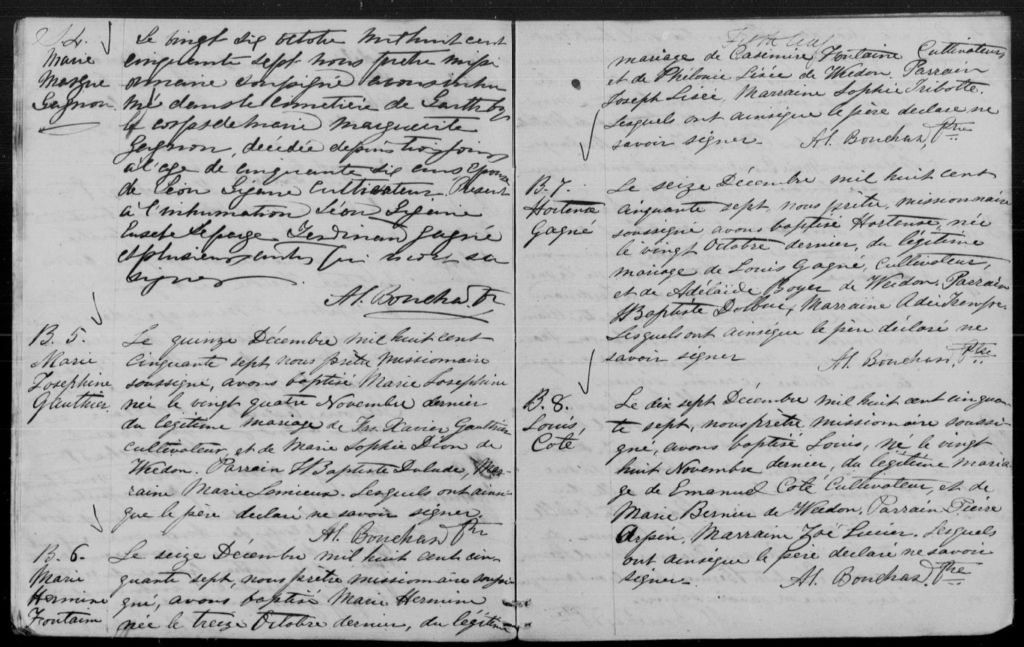 S. 4.
Marie
Margue
Gagnon
Le vingt six octobre mil huit cent
cinquante sept nous prêtre missi
onnaire soussigné avons inhu
mé dans le cimetière de
le corps de Marie Marguerite
Gagnon, décédée depuis trois jours
à l'age de cinquante six ans épouse
de Léon cultivateur. Présent
à l'inhumation Léon
Eusebe Lepage Ferdinand Gagné
et plusieurs autres qui n'ont su
signer
Al. Bouchard Ptr
B. 5.
Marie
Josephine
Gauthier
Le quinze Décembre mil huit cent
cinquante sept nous prêtre missionaire
soussigné, avons baptisé Marie Josephine
née le vingt quatre Novembre dernier
du légitime mariage de Frs Xavier Gauthier
cultivateur, et de Marie Sophie Dion de
Wedon. Parrain J Baptiste Dulude, Mar-
raine Marie Lemieux. Lesquels ont ainsi
que le père declaré ne savoir signer
Al. Bouchard Ptr
B. 6.
Marie
Hermine
Fontaine
Le seize Décembre mil huit cent cin
quante sept, nous prêtre missionaire soussi
gné, avons baptisé Marie Hermine
née le treize Octobre dernier, du légitime
mariage de Casimire Fontaine Cultivateur
et de Phelonie Lisée de Wedon, Parrain
Joseph Lisée, Marraine Sophie Tribotte.
Lesquels ont ainsi que le père declaré ne
savoir signer. Al. Bouchard, Ptre
B. 7.
Hortense
Gagné
Le seize Décembre mil huit cent
cinquante sept nous prêtre missionnaire
soussigné avons baptisé Hortense née
le vingt Octobre dernier, du légitime
mariage de Louis Gagné, Cultivateur,
et de Adélaide Boyer de Weedon, Parrain
J Baptiste Marraine
Lesquels ont ainsi que le père déclaré ne
savoir signer Al. Bouchard, Ptre
B. 8.
Louis,
Coté
Le dix sept Décembre mil huit cent cinquan
te sept, nous prêtre missionnaire soussi
gné, avons baptisé Louis, né le vingt
huit Novembre dernier, du légitime maria
ge de Emanuel Coté Cultivateur, et de
Marie Bernier de Weedon, Parrain Pierre
Arpin, Marraine Zoé Lucier. Lesquels
ont ainsi que le père declaré ne savoir
signer. Al. Bouchard, Ptre